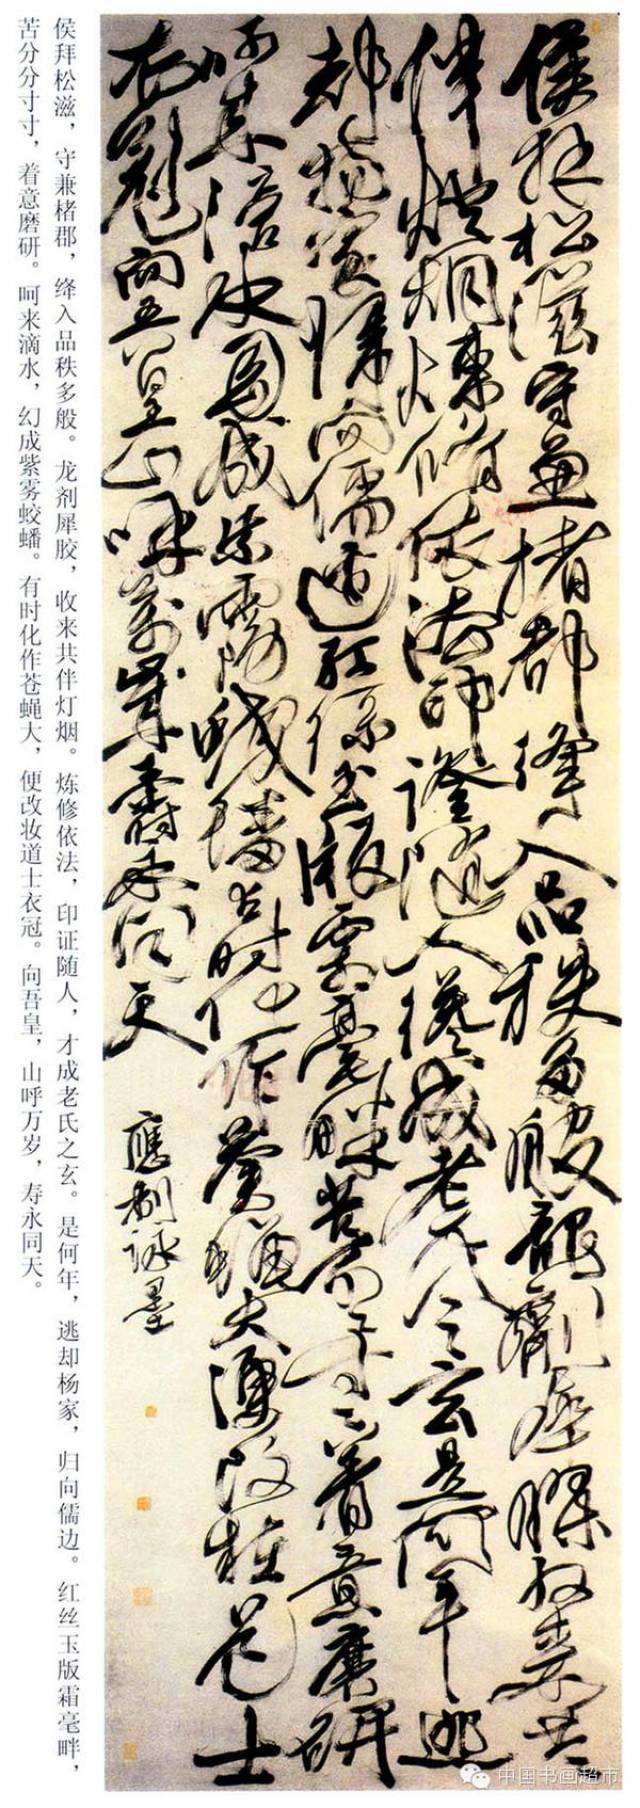 侯拜松滋守兼楮郡絳入品秩多般龍劑犀膠收來共
伴燈烟煉修依法印證隨人纔成老氏之玄是何年逃
却楊家歸向儒邊紅絲玉版霜毫畔苦分分寸寸着意磨研
呵來滴水幻成紫霧蛟蟠有時化作蒼蠅大便改粧道士
衣冠向吾皇山呼萬歲壽永同天
應制詠墨
侯拜松滋，守兼楮郡，绛入品秩多般。龙剂犀胶，收来共伴灯烟。炼修依法，印证随人，才成老氏之玄。是何年，逃却杨家，归向儒边。红丝玉版霜毫畔，
苦分分寸寸，着意磨研。呵来滴水，幻成紫雾蛟蟠。有时化作苍蝇大，便改妆道士衣冠。向吾皇，山呼万岁，寿永同天。
中国书画超市